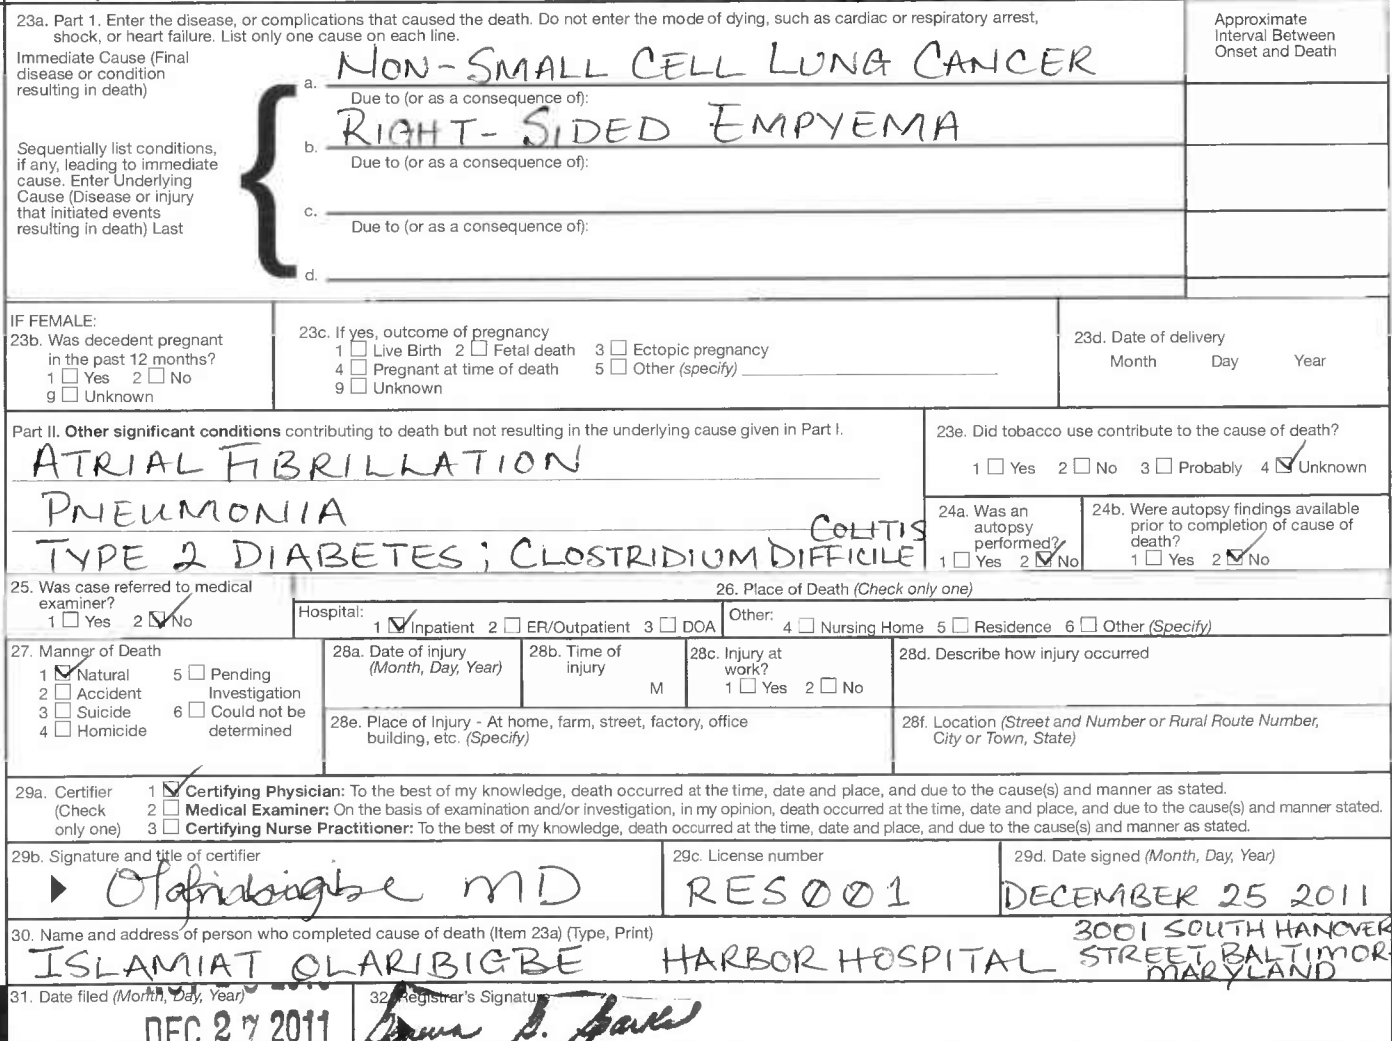 23a. Part 1. Enter the disease, or complications that caused the death. Do not enter the mode of dying, such as cardiac or respiratory arrest,
shock, or heart failure. List only one cause on each line.
Approximate
Interval Between
Onset and Death
Immediate Cause (Final
disease or condition
resulting in death)
a. NON-SMALL CELL LUNG CANCER
Due to (or as a consequence of):
Sequentially list conditions,
if any, leading to immediate
cause. Enter Underlying
Cause (Disease or injury
that initiated events
resulting in death) Last
b. RIGHT-SIDED EMPYEMA
Due to (or as a consequence of):
c.
Due to (or as a consequence of):
d.
IF FEMALE:
23b. Was decedent pregnant
in the past 12 months?
1 Yes 2 No
9 Unknown
23c. If yes, outcome of pregnancy
1 Live Birth 2 Fetal death 3 Ectopic pregnancy
4 Pregnant at time of death 5 Other (specify)
9 Unknown
23d. Date of delivery
Month Day Year
Part II. Other significant conditions contributing to death but not resulting in the underlying cause given in Part I.
ATRIAL FIBRILLATION
PNEUMONIA
COLITIS
TYPE 2 DIABETES; CLOSTRIDIUM DIFFICILE
23e. Did tobacco use contribute to the cause of death?
1 Yes 2 No 3 Probably 4 Unknown
24a. Was an
autopsy
performed?
1 Yes 2 No
24b. Were autopsy findings available
prior to completion of cause of
death?
1 Yes 2 No
25. Was case referred to medical
examiner?
1 Yes 2 No
26. Place of Death (Check only one)
Hospital:
1 Inpatient 2 ER/Outpatient 3 DOA
Other:
4 Nursing Home 5 Residence 6 Other (Specify)
27. Manner of Death
1 Natural 5 Pending
2 Accident Investigation
3 Suicide 6 Could not be
4 Homicide determined
28a. Date of injury
(Month, Day, Year)
28b. Time of
injury
M
28c. Injury at
work?
1 Yes 2 No
28d. Describe how injury occurred
28e. Place of Injury - At home, farm, street, factory, office
building, etc. (Specify)
28f. Location (Street and Number or Rural Route Number,
City or Town, State)
29a. Certifier
(Check
only one)
1 Certifying Physician: To the best of my knowledge, death occurred at the time, date and place, and due to the cause(s) and manner as stated.
2 Medical Examiner: On the basis of examination and/or investigation, in my opinion, death occurred at the time, date and place, and due to the cause(s) and manner stated.
3 Certifying Nurse Practitioner: To the best of my knowledge, death occurred at the time, date and place, and due to the cause(s) and manner as stated.
29b. Signature and title of certifier
MD
29c. License number
RES001
29d. Date signed (Month, Day, Year)
DECEMBER 25 2011
30. Name and address of person who completed cause of death (Item 23a) (Type, Print)
ISLAMIAT OLARIBIGBE HARBOR HOSPITAL
3001 SOUTH HANOVER
STREET BALTIMOR
MARYLAND
31. Date filed (Month, Day, Year)
DEC 27 2011
32. Registrar's Signature